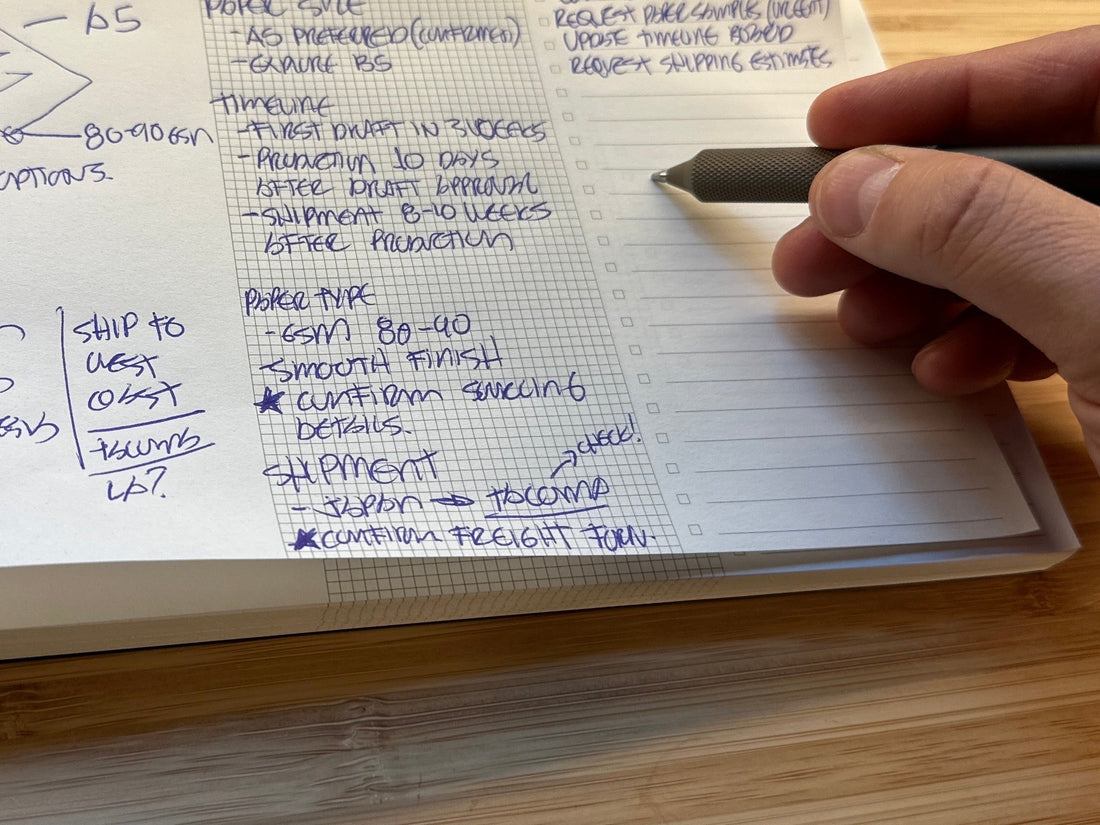 A5
80-90 GSM
OPTIONS.
SHIP TO
WEST
COAST
TACOMA
LA?
PAPER SIZE
- A5 PREFERRED (CONFIRMED)
- EXPLORE B5
TIMELINE
- FIRST DRAFT IN 3 WEEKS
- PRODUCTION 10 DAYS
AFTER DRAFT APPROVAL
- SHIPMENT 8-10 WEEKS
AFTER PRODUCTION
PAPER TYPE
- GSM 80-90
- SMOOTH FINISH
★ CONFIRM SOURCING
DETAILS.
SHIPMENT
- JAPAN → TACOMA
CHECK!
★ CONFIRM FREIGHT FORW.
REQUEST PAPER SAMPLES (URGENT)
UPDATE TIMELINE BOARD
REQUEST SHIPPING ESTIMATES